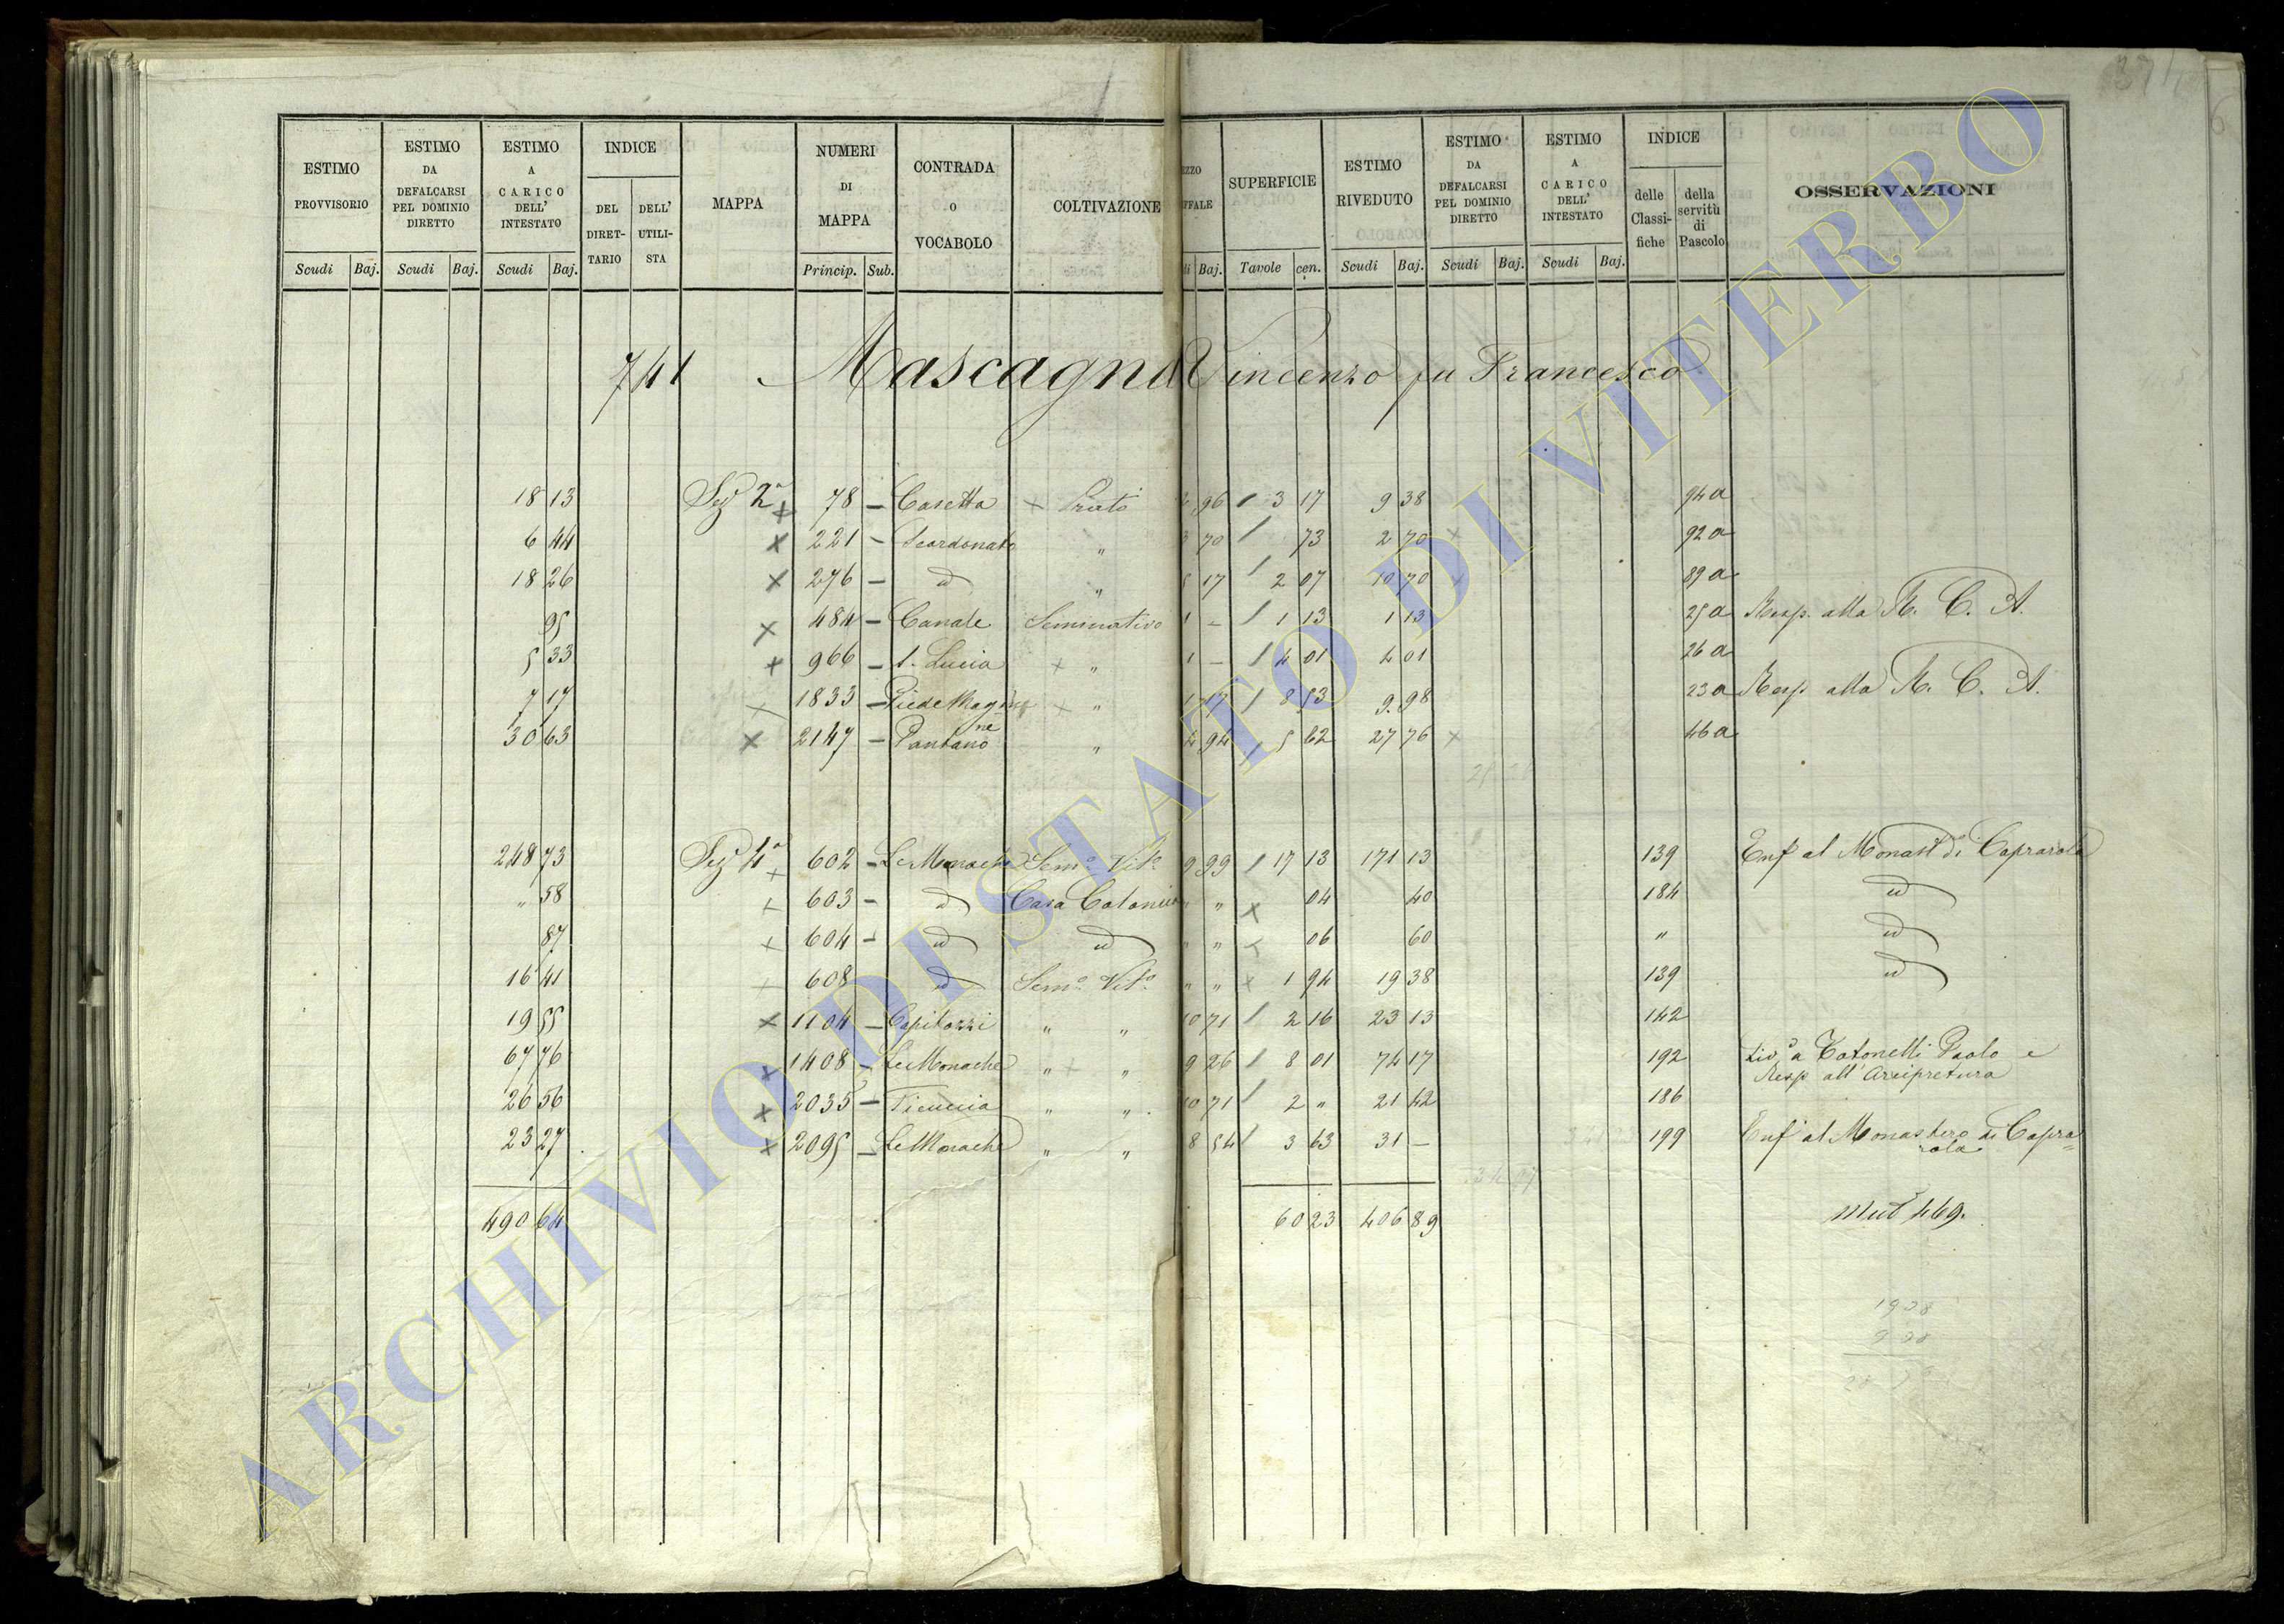 ESTIMO PROVVISORIO Scudi Baj.
ESTIMO DA DEFALCARSI PEL DOMINIO DIRETTO Scudi Baj.
ESTIMO A CARICO DELL' INTESTATO Scudi Baj.
INDICE DEL DIRET-TARIO DELL' UTILI-STA
MAPPA
NUMERI DI MAPPA Princip. Sub.
CONTRADA O VOCABOLO
COLTIVAZIONE
EZZO FFALE di Baj.
SUPERFICIE Tavole cen.
ESTIMO RIVEDUTO Scudi Baj.
ESTIMO DA DEFALCARSI PEL DOMINIO DIRETTO Scudi Baj.
ESTIMO A CARICO DELL' INTESTATO Scudi Baj.
INDICE delle Classi-fiche della servitù di Pascolo
OSSERVAZIONI
741 Mascagna Vincenzo fu Francesco
18 13 Sez 2a 78 – Casetta Prato 2 96 3 17 9 38 94a
6 44 221 – Scardonato " 3 70 73 2 70 92a
18 26 276 – id " 5 17 2 07 10 70 89a
95 484 – Canale Seminativo 1 – 1 13 1 13 25a Resp. alla R. C. A.
5 33 966 – S. Lucia " 1 – 4 01 4 01 26a
7 17 1833 – " 1 17 8 53 9.98 23a Resp alla R. C. A.
30 63 2147 – Pantano " 4 94 5 62 27 76 46a
248 73 Sez 4a 602 – Le Monache Semo Vito 9 99 17 13 171 13 139 Enf al Monast di Caprarola
" 58 603 – id Casa Colonica " " 04 40 184 id
87 604 – id id " " 06 60 " id
16 41 608 id Semo Vito " " 1 94 19 38 139 id
19 55 1104 – Capitozzi " " 10 71 2 16 23 13 142
67 76 1408 – Le Monache " " 9 26 8 01 74 17 192 Livo a Totonelli Paolo e
Resp all' Arcipretura
26 56 2035 – " " 10 71 2 " 21 42 186
23 27 2095 – Le Monache " " 8 54 3 63 31 – 199 Enf al Monastero di Capra=
rola
490 64 60 23 406 89 Mut 469.
ARCHIVIO DI STATO DI VITERBO